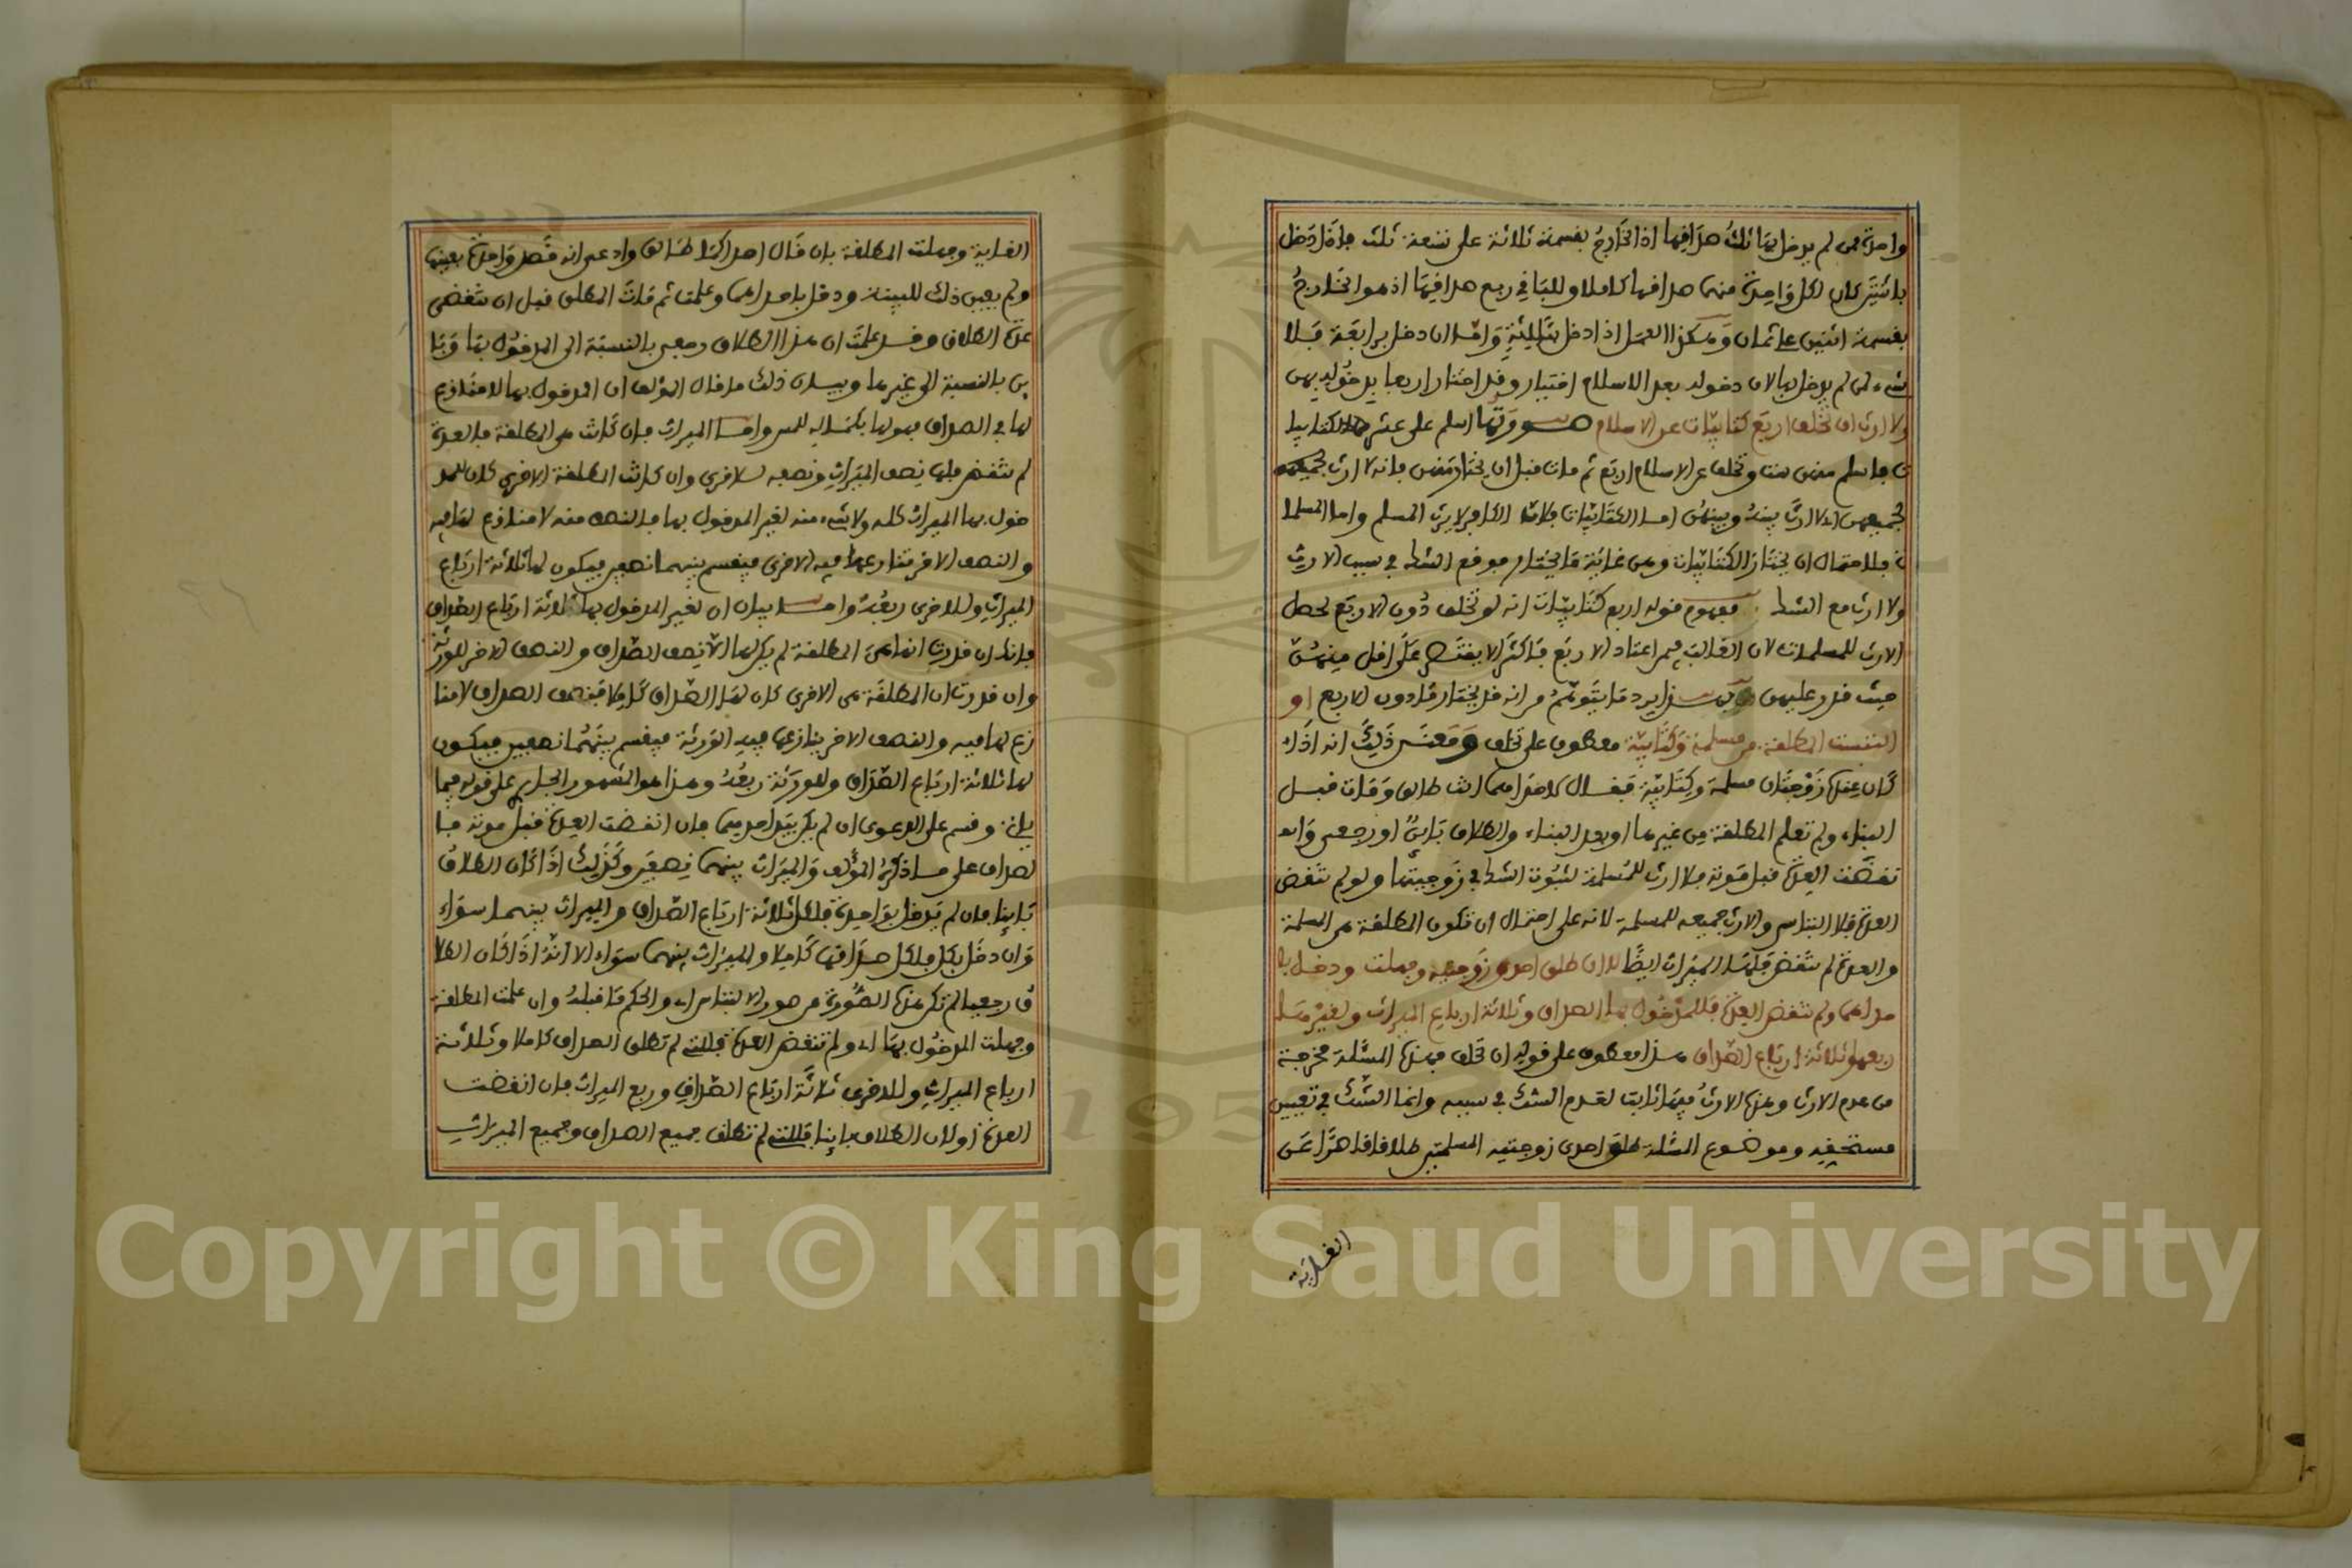 واحدة ممن لم يدخل بها ثلث صداقها اذ الخارج بقسمة ثلاثة على تسعة ثلث فاذا دخل
باثنتين كان لكل واحدة منهما صداقها كاملا وللباقي ربع صداقها اذ هو الخارج
بقسمة اثنين على ثمان وهكذا العمل اذا دخل بثالثة واما ان دخل برابعة فلا
شيء لمن لم يدخل بها لان دخوله بعد الاسلام اختيار وقد اختار اربعا بدخوله بهن
ولا ارث ان تخلف اربع كتابيات عن الاسلام صورتها اسلم على عشر كتابيا
ت فاسلم منهن ست وتخلف عن الاسلام اربع ثم مات قبل ان يختار منهن فانه لا ارث لجميعهن
لجميعهن اذ لا ارث بينه وبينهن اما الكتابيات فلان الكافر لا يرث المسلم واما المسلما
ت فلاحتمال ان يختار الكتابيات وهن غاية ما يختار فوقع الشك في سبب الارث
ولا ارث مع الشك مفهوم قوله اربع كتابيات انه لو تخلف دون الاربع لحصل
الارث للمسلمات لان الغالب فيمن اعتاد الاربع فاكثر لا يقتصر على اقل منهن
حيث قدر عليهن يرد ما يتوهم من انه قد يختار ما دون الاربع او
التبست المطلقة من مسلمة وكتابية معطوف على تخلف ومعنى ذلك انه اذا
كان عنده زوجتان مسلمة وكتابية فقال لاحداهما انت طالق ومات قبل
البناء ولم تعلم المطلقة من غيرها او بعد البناء والطلاق باين او رجعي وا
نقضت العدة قبل موته فلا ارث للمسلمة لثبوت الشك في زوجيتها ولو لم تنقض
العدة فلا التباس والارث جميعه للمسلمة لانه على احتمال ان تكون المطلقة هي المسلمة
والعدة لم تنقض فلها الميراث ايضا لا ان طلق احدى زوجتيه وجهلت ودخل با
حداهما ولم تنقض العدة فللمدخول بها الصداق وثلاثة ارباع الميراث ولغيرها
ربعه وثلاثة ارباع الصداق هذا معطوف على قوله ان تخلف فهذه المسئلة مخرجة
من عدم الارث وهذه الارث فيها ثابت لعدم الشك في سببه وانما الشك في تعيين
مستحقه وموضوع المسئلة طلق احدى زوجتيه المسلمتين طلاقا قاصرا عن
الغاية
الغاية وجهلت المطلقة بان قال احداكما طالق وادعى انه قصد واحدة بعينها
ولم يعين ذلك للبينة ودخل باحداهما وعلمت ثم مات المطلق قبل ان تنقضي
عدة الطلاق وقد علمت ان هذا الطلاق رجعي بالنسبة الى المدخول بها وبا
ين بالنسبة الى غيرها وبيان ذلك ما قال المؤلف ان المدخول بها لا منازع
لها في الصداق فهو لها بكماله للمس واما الميراث فان كانت هي المطلقة فالعدة
لم تنقض فلها نصف الميراث ونصفه للاخرى وان كانت المطلقة الاخرى كان للمد
خول بها الميراث كله ولا شيء منه لغير المدخول بها فالنصف منه لا منازع لها فيه
والنصف الاخر تنازعها فيه الاخرى فيقسم بينهما نصفين فيكون لها ثلاثة ارباع
الميراث وللاخرى ربعه واما بيان ان لغير المدخول بها ثلاثة ارباع الصداق
فانك ان قدرت انها هي المطلقة لم يكن لها الا نصف الصداق والنصف الاخر للورثة
وان قدرت ان المطلقة هي الاخرى كان لها الصداق كاملا فنصف الصداق لا منا
زع لها فيه والنصف الاخر ينازعها فيه الورثة فيقسم بينهما نصفين فيكون
لها ثلاثة ارباع الصداق وللورثة ربعه وهذا هو المشهور الجاري على قوله فيما
ياتي وقسم على الدعوى ان لم يكن بيد احدهما فان انقضت العدة قبل موته فا
لصداق على ما ذكره المؤلف والميراث بينهما نصفين وكذلك اذا كان الطلاق
باينا فان لم يدخل بواحدة فلكل ثلاثة ارباع الصداق والميراث بينهما سواء
وان دخل بكل فلكل صداقها كاملا والميراث بينهما سواء الا انه اذا كان الطلا
ق رجعيا لم تكن هذه الصورة من صور الالتباس اه والحكم ما قبله وان علمت المطلقة
وجهلت المدخول بها اه ولم تنقض العدة فللتي لم تطلق الصداق كاملا وثلاثة
ارباع الميراث وللاخرى ثلاثة ارباع الصداق وربع الميراث فان انقضت
العدة او كان الطلاق باينا فللتي لم تطلق جميع الصداق وجميع الميراث
Copyright © King Saud University
195